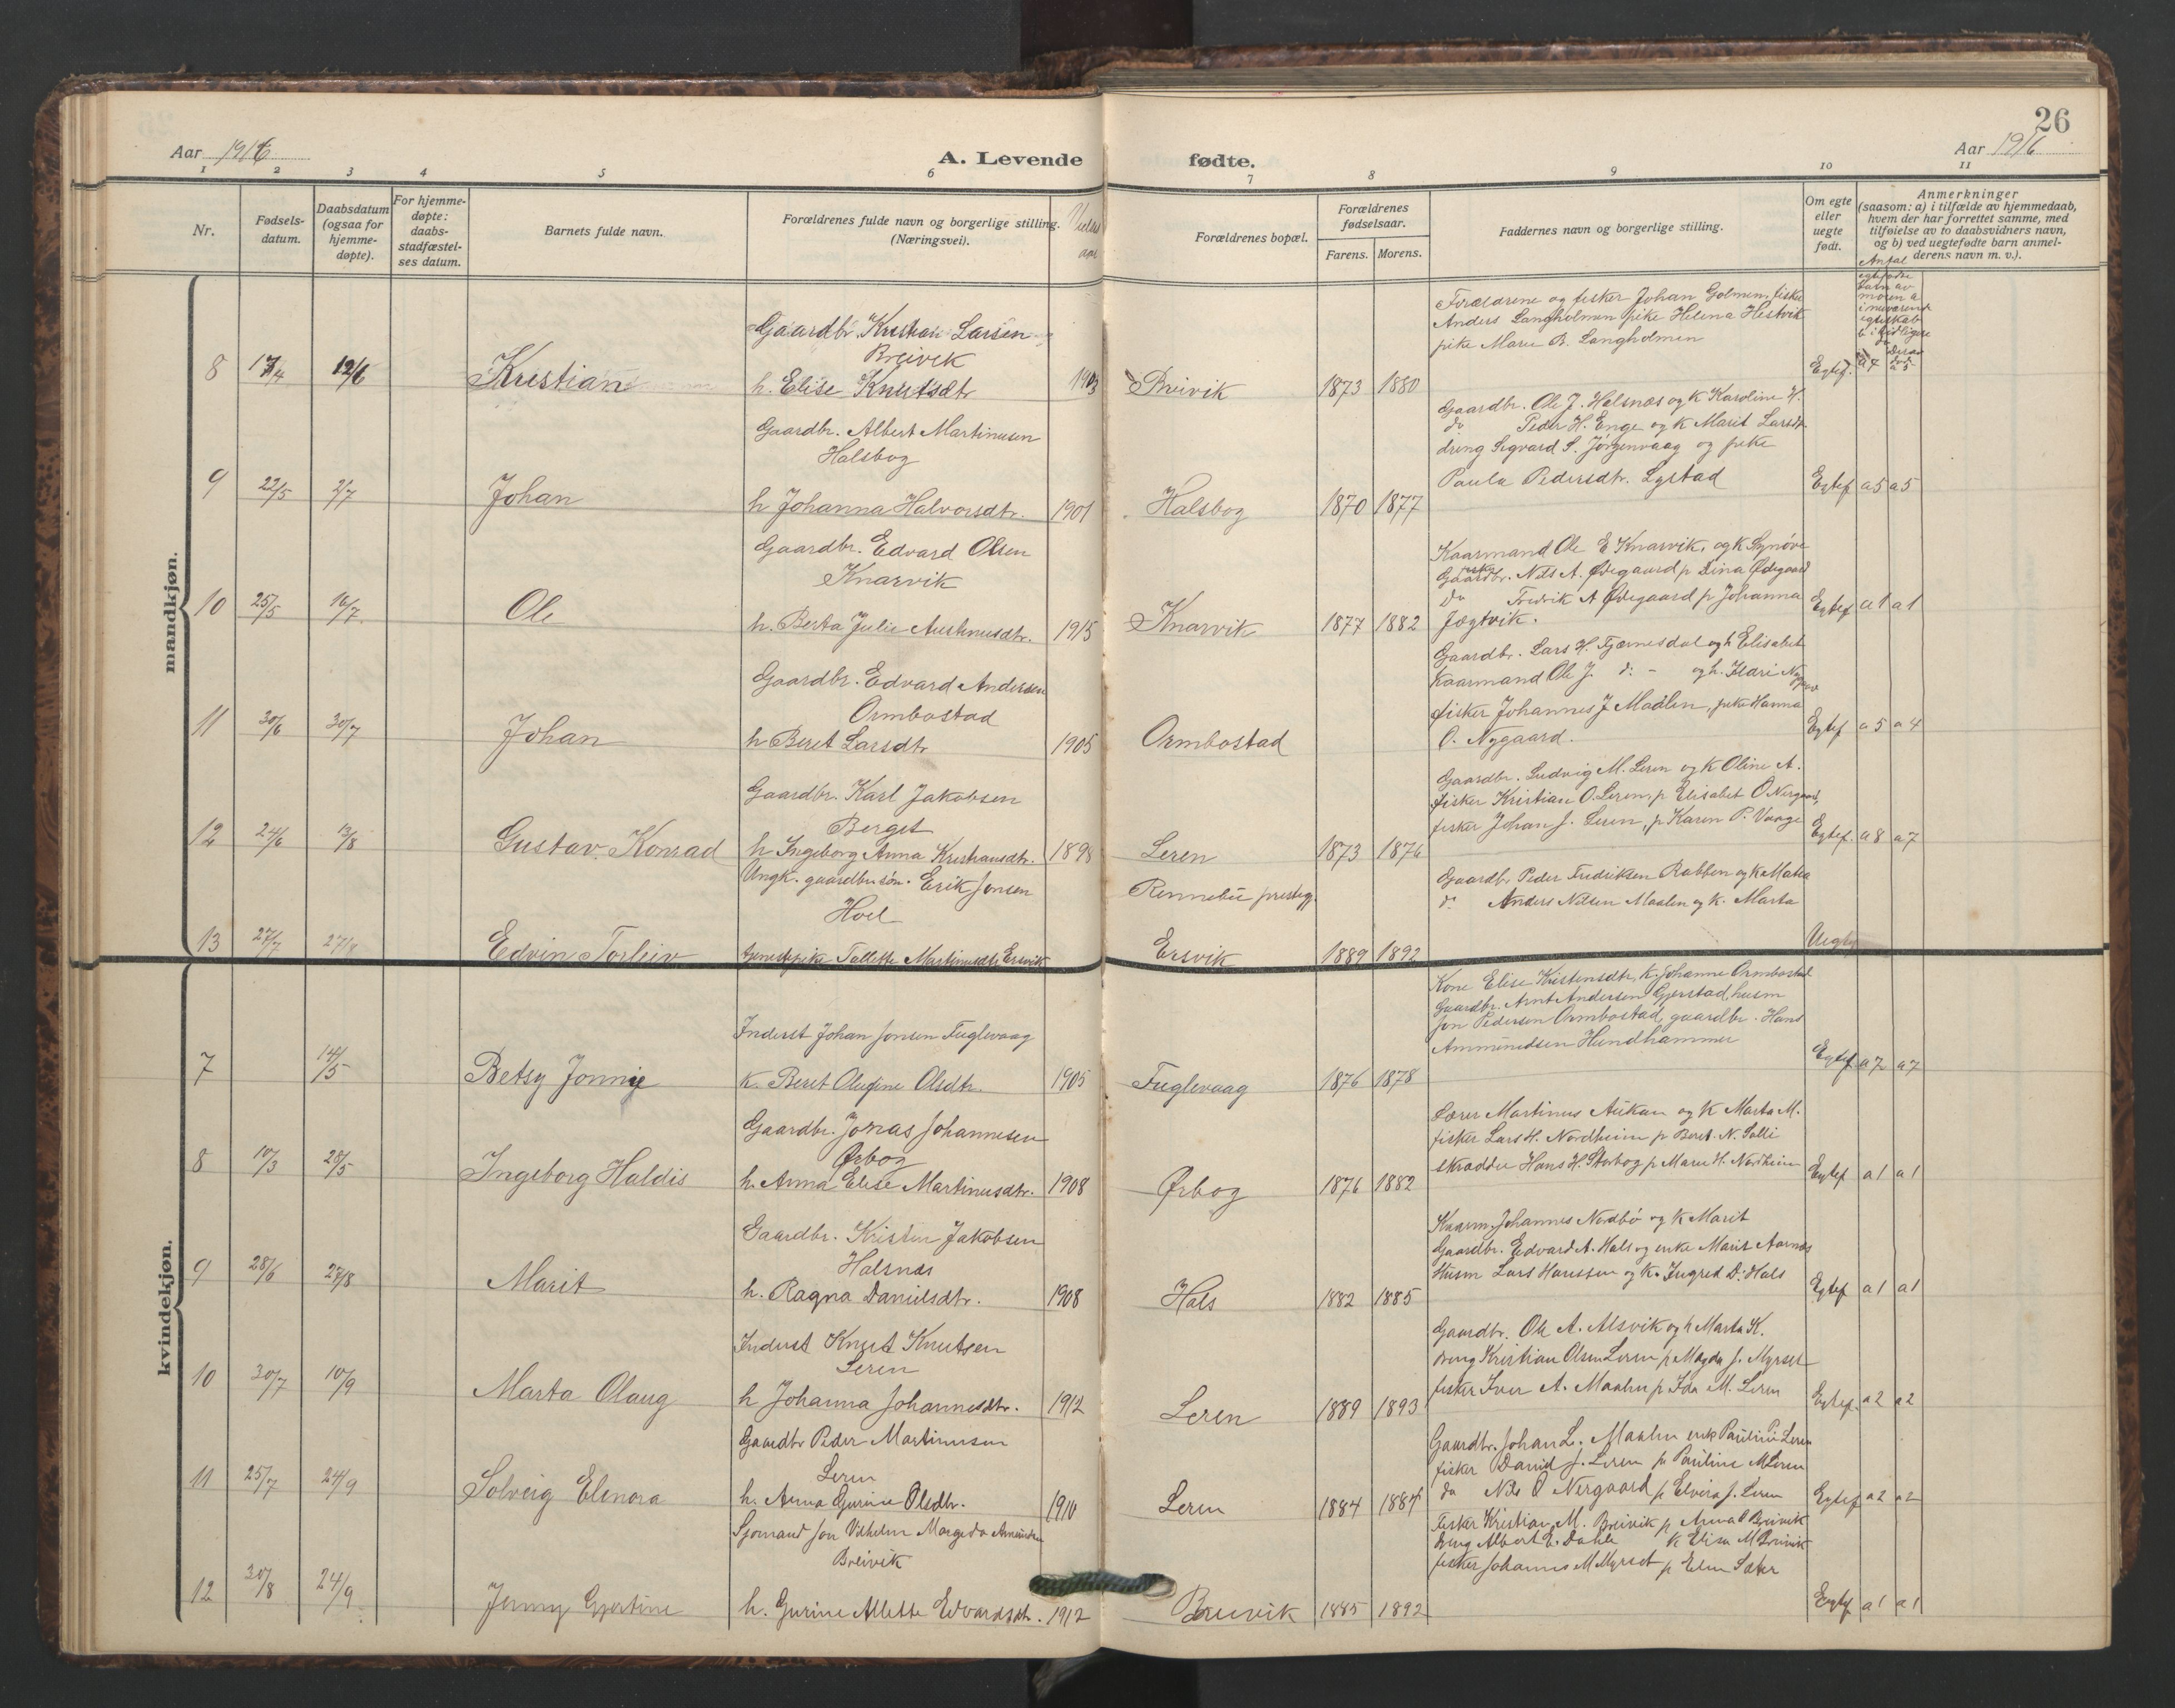 26
Aar 1916
A. Levende fødte.
Aar 1916
1 2 3 4 5 6 7 8 9 10 11
Nr.
Fødsels-
datum.
Daabsdatum
(ogsaa for
hjemme-
døpte).
For hjemme-
døpte:
daabs-
stadfæstel-
ses datum.
Barnets fulde navn.
Forældrenes fulde navn og borgerlige stilling.
(Næringsvei).
Vielses
aar
Forældrenes bopæl.
Forældrenes
fødselsaar.
Farens. Morens.
Faddernes navn og borgerlige stilling.
Om egte
eller
uegte
født.
Anmerkninger
(saasom: a) i tilfælde av hjemmedaab,
hvem der har forrettet samme, med
tilføielse av to daabsvidners navn,
og b) ved uegtefødte barn anmel-
derens navn m. v.).
Antal
egtefødte
barn av
moren a
i nuværende
egteskab
b i tidligere
mandkjøn.
8 17/4 12/6 Kristian
Gaardbr. Kristian Larsen
Breivik
h. Elise Knutsdtr 1903
Breivik 1873 1880
Forældrene og fisker Johan Golmen, fisker
Anders Langholmen pike Helena Hestvik
pike Marie B. Langholmen
Egtef. a7 a5
9 22/5 2/7 Johan
Gaardbr. Albert Martinusen
Halsbog
h Johanna Halvorsdtr. 1901
Halsbog 1870 1877
Gaardbr. Ole J. Halsnæs og k Karoline H.
do Peder H. Enge og k Marit Larsdtr.
dreng Sigvard S. Jørgenvaag og pike
Paula Pedersdtr. Lystad
Egtef a5 a5
10 25/5 16/7 Ole
Gaardbr. Edvard Olsen
Knarvik
h. Berta Julie Austinusdtr. 1915
Knarvik 1877 1882
Kaarmand Ole E Knarvik, og k Synøve
Gaardbr. Nils A. Ødegaard p Dina Ødegaard
do Fredrik A Ødegaard p Johanna
Jægtvik.
Egtef a1 a1
11 30/6 30/7 Johan
Gaardbr. Edvard Andersen
Ormbostad
h Beret Larsdtr 1905
Ormbostad
Gaardbr. Lars H. Tjærnesdal og h Elisabet
Kaarmand Ole J. do - og h. Ildri Nygaard
fisker Johannes J Maalen, pike Hanna
O. Nygaard.
Egtef a5 a4
12 24/6 13/8 Gustav Konrad
Gaardbr. Karl Jakobsen
Berget
h Ingeborg Anna Kristiansdtr. 1898
Leren 1873 1876
Gaardbr. Ludvig M. Leren og k Oline A.
fisker Kristian O. Leren, p Elisabet O Nergaard,
fisker Johan J. Leren, p Karen P. Vaage
Egtef. a8 a7
13 27/7 27/8 Edvin Torleiv
Ungk. gaardbrusøn. Erik Jonsen
Hoel
Tjenestepike Tallette Martinusdtr Ersvik
Rennebu prestegj.
Ersvik 1889 1892
Gaardbr Peder Fredriksen Rabben og k Malea
do Anders Nilsen Maalen og k. Marta
Uegte
kvindekjøn.
7 14/5 Betsy Jonnie
Inderst Johan Jonsen Fuglevaag
k. Beret Olufine Olsdtr. 1905
Fuglevaag 1876 1878
Kone Elise Kristensdtr, k. Johanne Ormbostad
Gaardbr. Arnt Andersen Gjerstad, husm
Jon Pedersen Ormbostad, gaardbr. Hans
Ammundsen Hundhammer
Egtef a7 a7
8 10/3 28/5 Ingeborg Haldis
Gaardbr. Jonas Johannesen
Ørbog
h. Anna Elise Martinusdtr. 1908
Ørbog 1876 1882
Lærer Martinus Aukan og k Marta M.
fisker Lars H. Nordheim p Beret. N. Solli
skrædder Hans H. Storbog p Marie H. Nordheim
Egtef a1 a1
9 28/6 27/8 Marit
Gaardbr. Kristen Jakobsen
Halsnæs
h. Ragna Danielsdtr. 1908
Hals 1882 1885
Kaarm. Johannes Nordbø og k Marit
Gaardbr. Edvard A. Hals og enke Marit Aarnes
Husm Lars Hanssen og k. Ingred D. Hals
Egtef a1 a1
10 30/7 10/9 Marta Olaug
Inderst Knut Knutsen
Leren
h Johanna Johannesdtr. 1912
Leren 1889 1893
Gaardbr. Ole A. Alsvik og h Marta K.
dreng Kristian Olsen Leren p Magda J. Myrset
fisker Iver A. Maalen p Ida M. Leren
Egtef. a2 a2
11 25/7 24/9 Solveig Elenora
Gaardbr Peder Martinusen
Leren
h. Anna Gurine Olsdtr. 1910
Leren 1884 1884
Gaardbr. Johan L. Maalen enke Pauline Leren
fisker David J. Leren p Pauline M Leren
do Nils O Nergaard p Elvira J. Leren
Egtef a2 a2
12 30/8 24/9 Jenny Gjertine
Sjømand Jon Vilhelm Margido Amundsen
Breivik
h. Gurine Allette Edvardsdtr. 1912
Breivik 1885 1892
Fisker Kristian M. Breivik p Anna O Breivik
Dreng Albert E. Dahle k Elisa M Breivik
fisker Johannes M Myrset p Elen Sæter
Egtef a1 a1